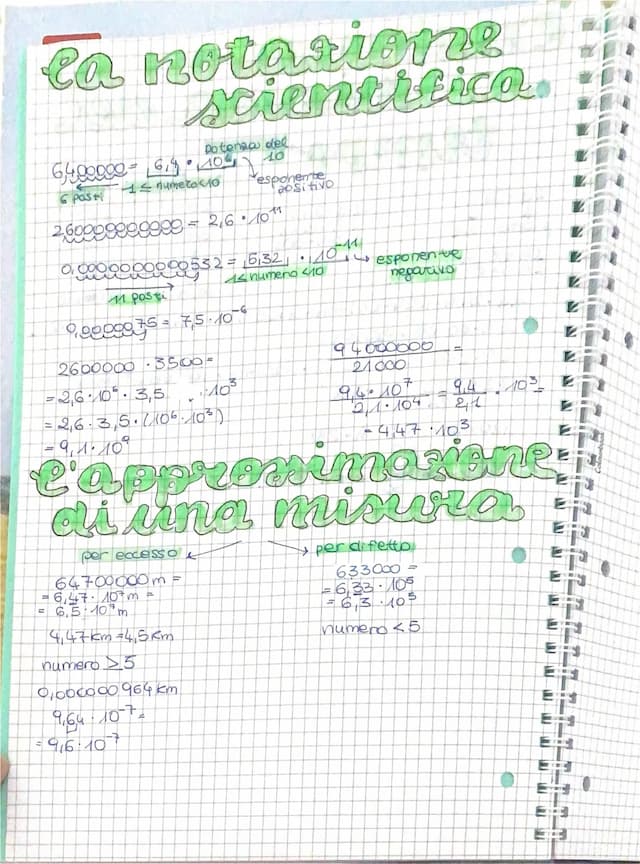 la notazione
scientifica
6,400000 = 6,4 · 10⁶ potenza del 10
6 posti 1 ≤ numero < 10 esponente positivo
260000000000 = 2,6 · 10¹¹
0,0000000000532 = 5,32 · 10⁻¹¹ esponente negativo
11 posti 1 ≤ numero < 10
0,0000075 = 7,5 · 10⁻⁶
2600000 · 3500 =
= 2,6 · 10⁶ · 3,5 · 10³
= 2,6 · 3,5 · (10⁶ · 10³)
= 9,1 · 10⁹
94000000 / 21000 =
9,4 · 10⁷ / 2,1 · 10⁴ = 9,4 / 2,1 · 10³ =
= 4,47 · 10³
l'approssimazione
di una misura
per eccesso
64700000 m =
= 6,47 · 10⁷ m =
= 6,5 · 10⁷ m
4,47 km = 4,5 km
numero ≥ 5
0,000000964 km
9,64 · 10⁻⁷ =
= 9,6 · 10⁻⁷
per difetto
633000 =
= 6,33 · 10⁵
= 6,3 · 10⁵
numero < 5